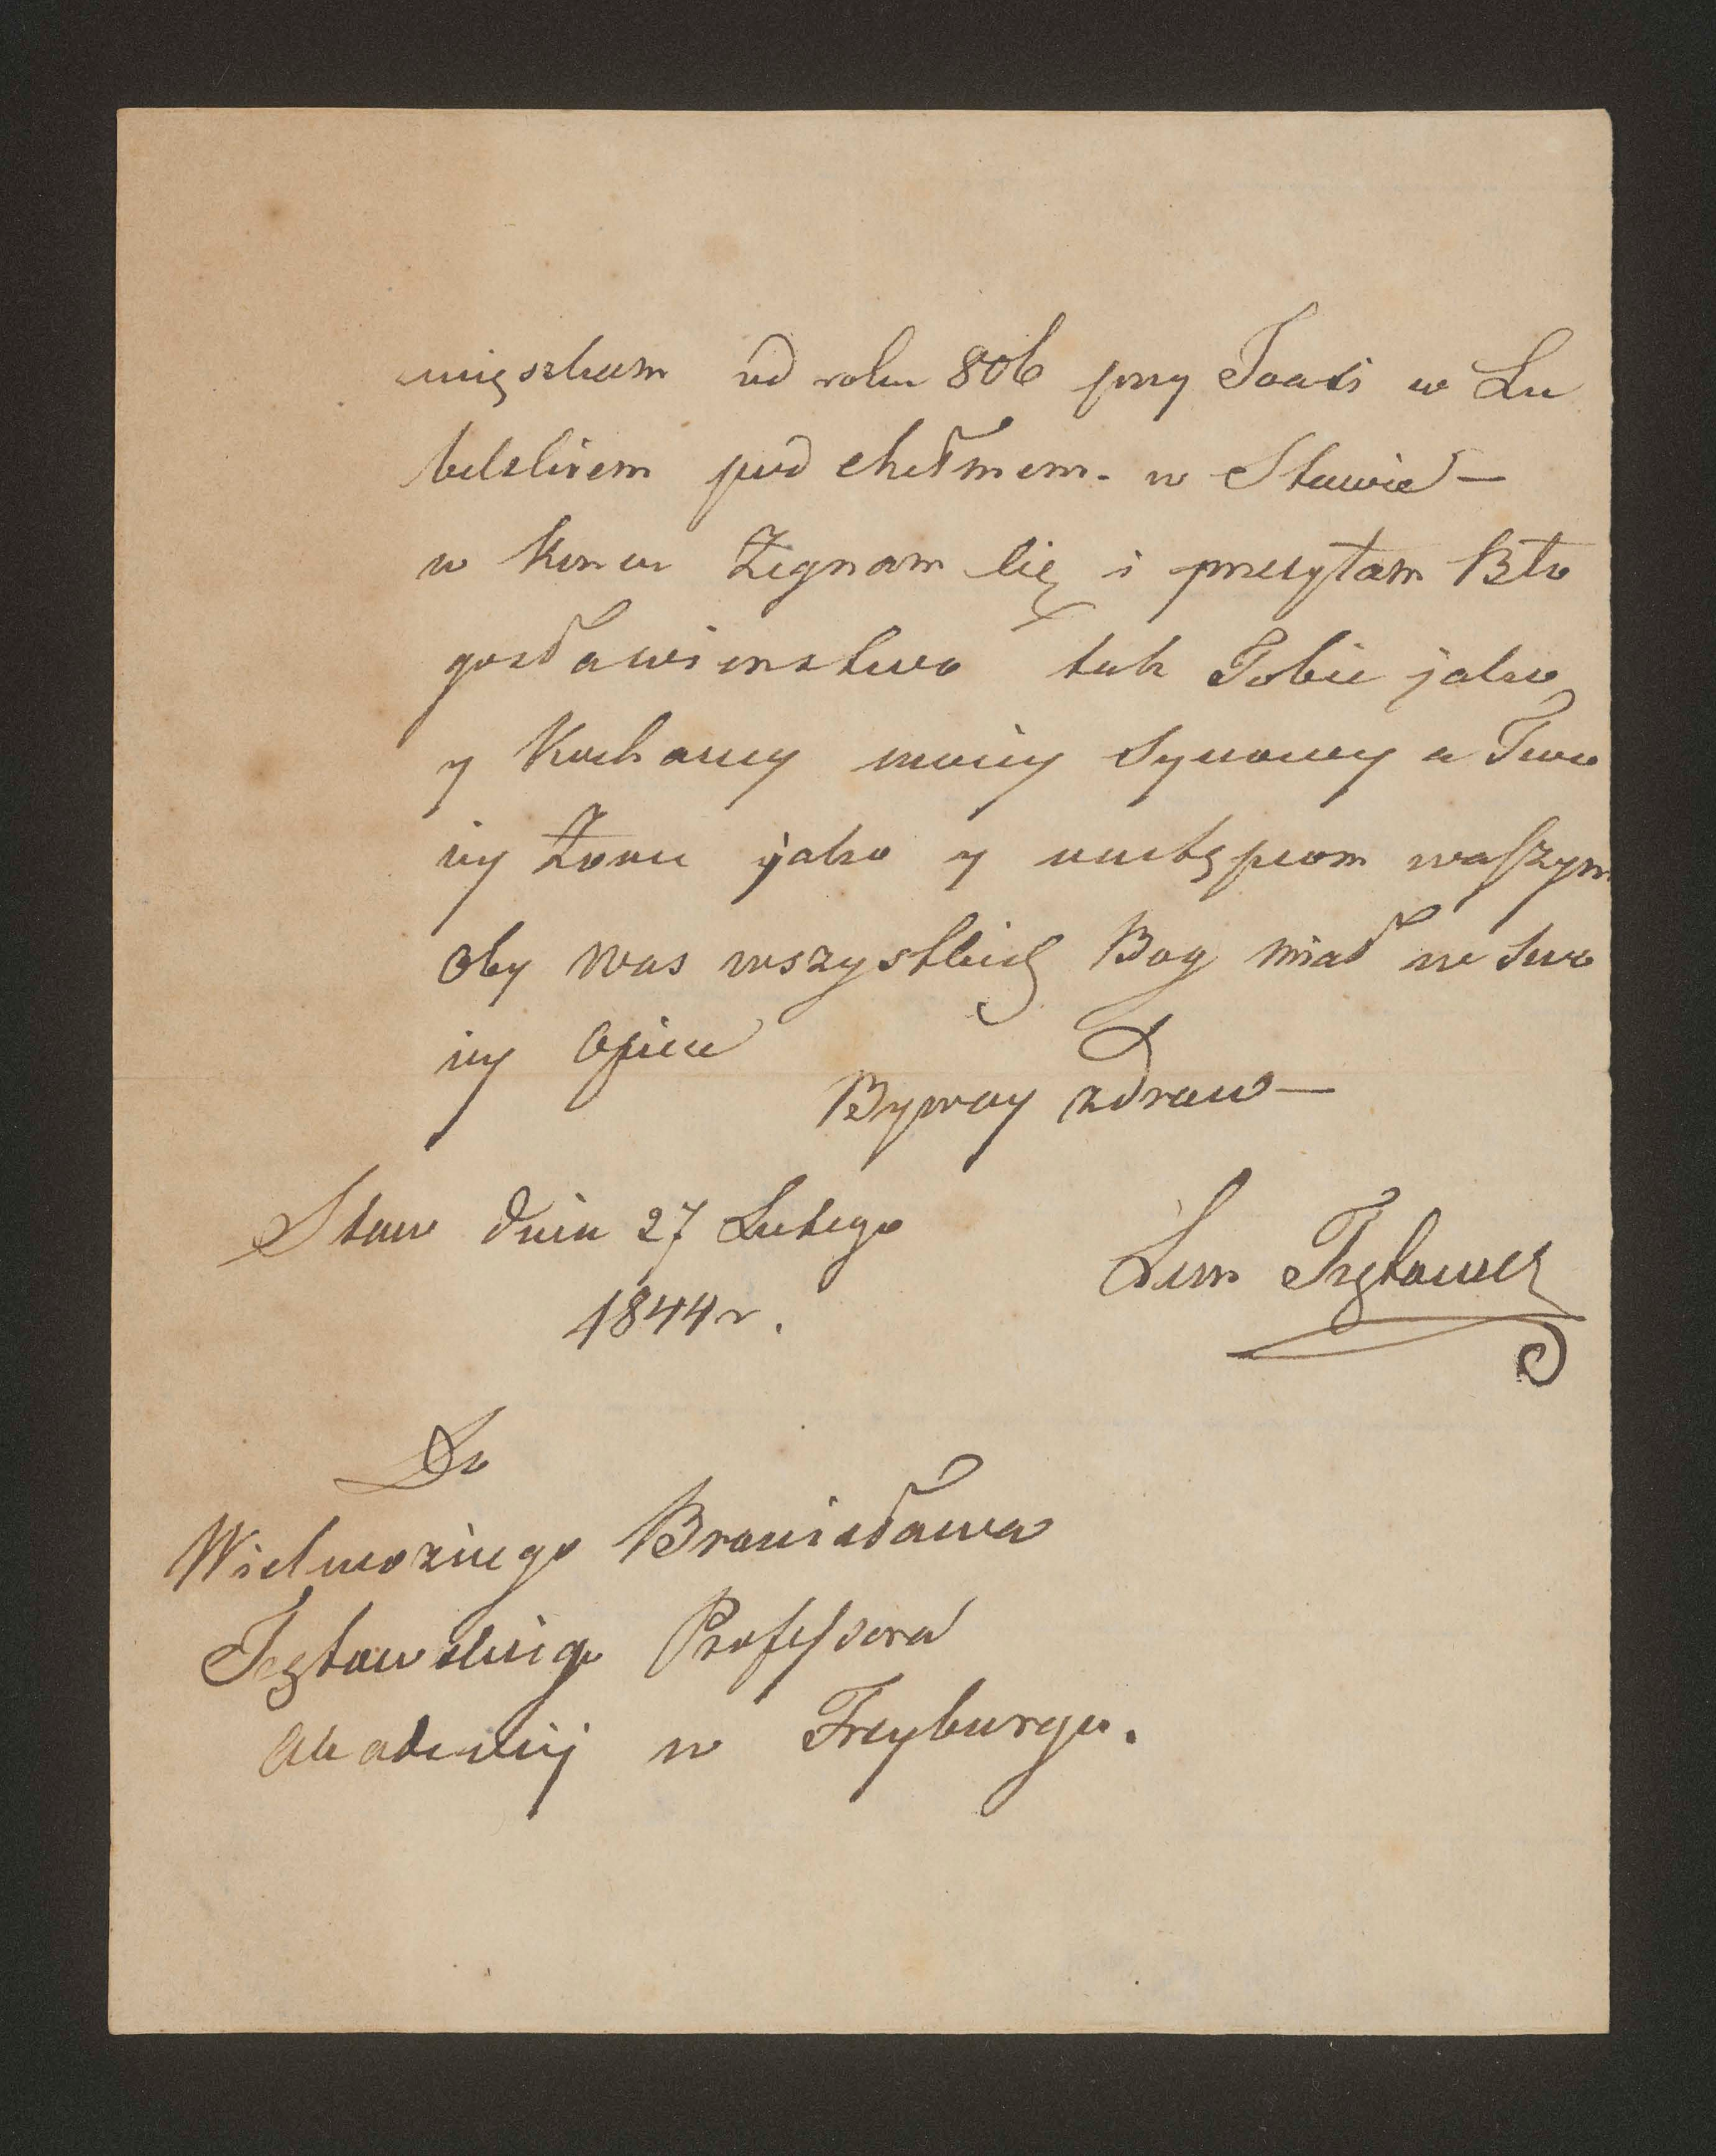 mięszkam od roku 806 przy Traci w Lu
belskiem pod chełmem. w Stawie —
w koncu Żegnam Cię i przesyłam Bło
gosławienstwo tak Tobie jako
y Kochaney moiey Synowey a Two
iey Żonie jako y następcom waszym
Oby was wszystkich Bog miał we swo
iey Opiece
Byway zdrow —
Staw dnia 27 Lutego
1844 r.
Do
Wielmożnego Bronisława
Professora
Akademij w Freyburgu.